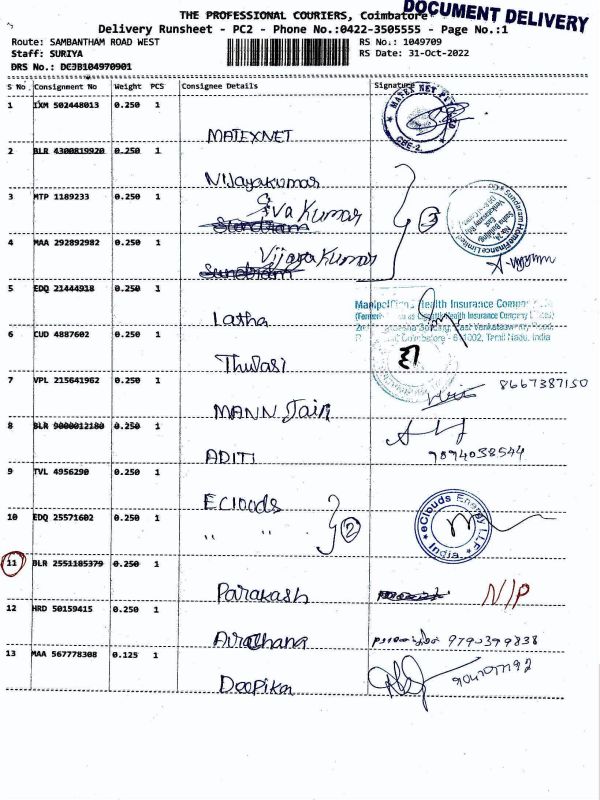 THE PROFESSIONAL COURIERS, Coimbatore
DOCUMENT DELIVERY
Delivery Runsheet - PC2 - Phone No.:0422-3505555 - Page No.:1
Route: SAMBANTHAM ROAD WEST RS No.: 1049709
Staff: SURIYA RS Date: 31-Oct-2022
DRS No.: DC3B104970901
S No Consignment No Weight PCS Consignee Details Signature
1 IXM 502448013 0.250 1
MATEXNET
CBE-2.
2 BLR 4300819920 0.250 1
Nijayakumar
3 MTP 1189233 0.250 1
Siva Kumar
Sundram
3
Sundaram Home Finance Limited
4 MAA 292892982 0.250 1
Vijaya Kumar
Sundram
5 EDQ 21444918 0.250 1
Latha
Health Insurance Company
Health Insurance Company Limited)
East Venkatasamy Road,
Coimbatore - 641002, Tamil Nadu, India
6 CUD 4887602 0.250 1
Thulasi
7 VPL 215641962 0.250 1
MANN Jain
8667387150
8 BLR 9000012180 0.250 1
ADITI
7094038544
9 TVL 4956290 0.250 1
Eclouds
10 EDQ 25571602 0.250 1
" "
2
eClouds Energy LLP
India
11 BLR 2551185379 0.250 1
Parakash
N/P
12 HRD 50159415 0.250 1
Aradhana
9790399838
13 MAA 567778308 0.125 1
Deepika